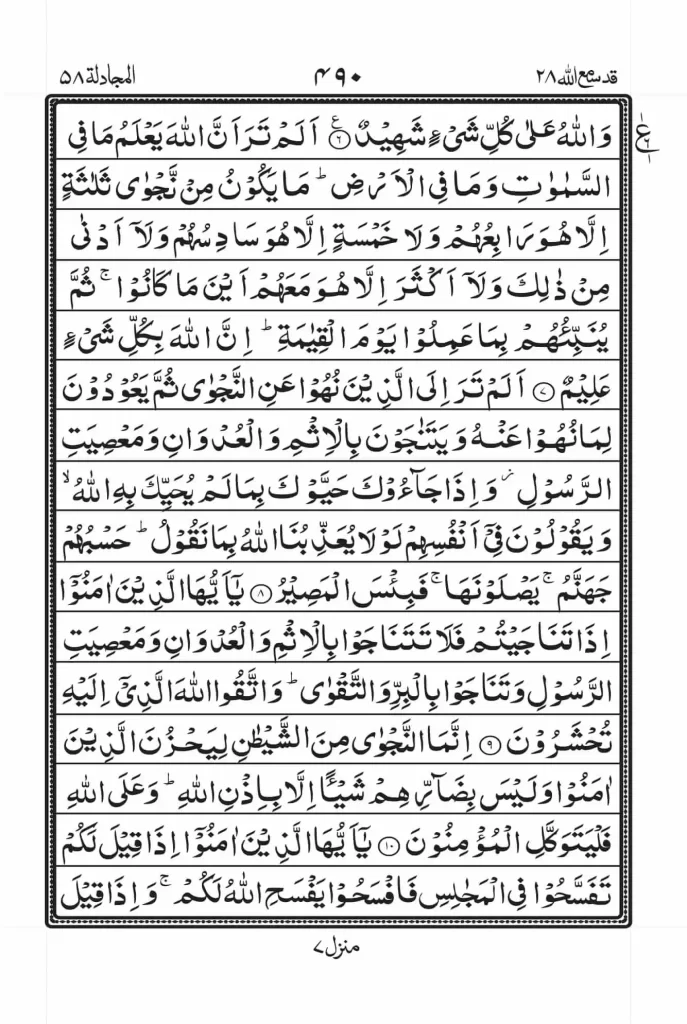 قد سمع الله ٢٨
٤٩٠
المجادلة ٥٨
وَاللّٰهُ عَلٰى كُلِّ شَىْءٍ شَهِيْدٌ ۝٦ اَلَمْ تَرَ اَنَّ اللّٰهَ يَعْلَمُ مَا فِى
السَّمٰوٰتِ وَمَا فِى الْاَرْضِ ؕ مَا يَكُوْنُ مِنْ نَّجْوٰى ثَلٰثَةٍ
اِلَّا هُوَ رَابِعُهُمْ وَلَا خَمْسَةٍ اِلَّا هُوَ سَادِسُهُمْ وَلَاۤ اَدْنٰى
مِنْ ذٰلِكَ وَلَاۤ اَكْثَرَ اِلَّا هُوَ مَعَهُمْ اَيْنَ مَا كَانُوْا ۚ ثُمَّ
يُنَبِّئُهُمْ بِمَا عَمِلُوْا يَوْمَ الْقِيٰمَةِ ؕ اِنَّ اللّٰهَ بِكُلِّ شَىْءٍ
عَلِيْمٌ ۝٧ اَلَمْ تَرَ اِلَى الَّذِيْنَ نُهُوْا عَنِ النَّجْوٰى ثُمَّ يَعُوْدُوْنَ
لِمَا نُهُوْا عَنْهُ وَيَتَنٰجَوْنَ بِالْاِثْمِ وَالْعُدْوَانِ وَمَعْصِيَتِ
الرَّسُوْلِ ؗ وَاِذَا جَآءُوْكَ حَيَّوْكَ بِمَا لَمْ يُحَيِّكَ بِهِ اللّٰهُ ۙ
وَيَقُوْلُوْنَ فِىْۤ اَنْفُسِهِمْ لَوْلَا يُعَذِّبُنَا اللّٰهُ بِمَا نَقُوْلُ ؕ حَسْبُهُمْ
جَهَنَّمُ ۚ يَصْلَوْنَهَا ۚ فَبِئْسَ الْمَصِيْرُ ۝٨ يٰۤاَيُّهَا الَّذِيْنَ اٰمَنُوْۤا
اِذَا تَنَاجَيْتُمْ فَلَا تَتَنَاجَوْا بِالْاِثْمِ وَالْعُدْوَانِ وَمَعْصِيَتِ
الرَّسُوْلِ وَتَنَاجَوْا بِالْبِرِّ وَالتَّقْوٰى ؕ وَاتَّقُوا اللّٰهَ الَّذِىْۤ اِلَيْهِ
تُحْشَرُوْنَ ۝٩ اِنَّمَا النَّجْوٰى مِنَ الشَّيْطٰنِ لِيَحْزُنَ الَّذِيْنَ
اٰمَنُوْا وَلَيْسَ بِضَآرِّهِمْ شَيْـًٔا اِلَّا بِاِذْنِ اللّٰهِ ؕ وَعَلَى اللّٰهِ
فَلْيَتَوَكَّلِ الْمُؤْمِنُوْنَ ۝١٠ يٰۤاَيُّهَا الَّذِيْنَ اٰمَنُوْۤا اِذَا قِيْلَ لَكُمْ
تَفَسَّحُوْا فِى الْمَجٰلِسِ فَافْسَحُوْا يَفْسَحِ اللّٰهُ لَكُمْ ۚ وَاِذَا قِيْلَ
منزل ٧